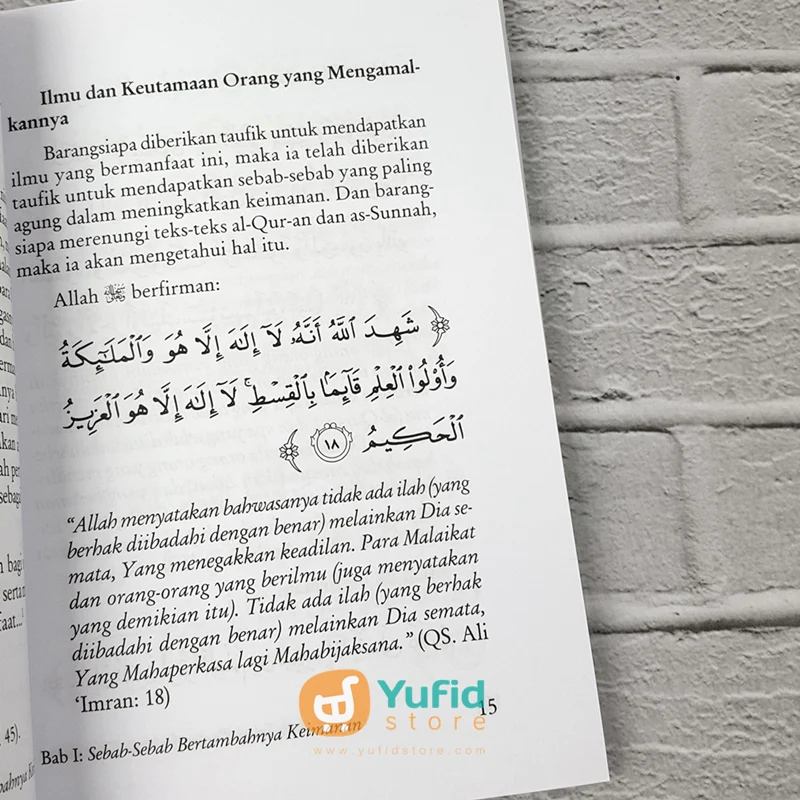 Ilmu dan Keutamaan Orang yang Mengamal-
kannya
Barangsiapa diberikan taufik untuk mendapatkan
ilmu yang bermanfaat ini, maka ia telah diberikan
taufik untuk mendapatkan sebab-sebab yang paling
agung dalam meningkatkan keimanan. Dan barang-
siapa merenungi teks-teks al-Qur-an dan as-Sunnah,
maka ia akan mengetahui hal itu.
Allah ﷻ berfirman:
﴿ شَهِدَ ٱللَّهُ أَنَّهُۥ لَآ إِلَٰهَ إِلَّا هُوَ وَٱلْمَلَٰٓئِكَةُ
وَأُو۟لُوا۟ ٱلْعِلْمِ قَآئِمًۢا بِٱلْقِسْطِ ۚ لَآ إِلَٰهَ إِلَّا هُوَ ٱلْعَزِيزُ
ٱلْحَكِيمُ ١٨ ﴾
“Allah menyatakan bahwasanya tidak ada ilah (yang
berhak diibadahi dengan benar) melainkan Dia se-
mata, Yang menegakkan keadilan. Para Malaikat
dan orang-orang yang berilmu (juga menyatakan
yang demikian itu). Tidak ada ilah (yang berhak
diibadahi dengan benar) melainkan Dia semata,
Yang Mahaperkasa lagi Mahabijaksana.” (QS. Ali
‘Imran: 18)
Bab I: Sebab-Sebab Bertambahnya Keimanan
15
Yufid
store
www.yufidstore.com
45).